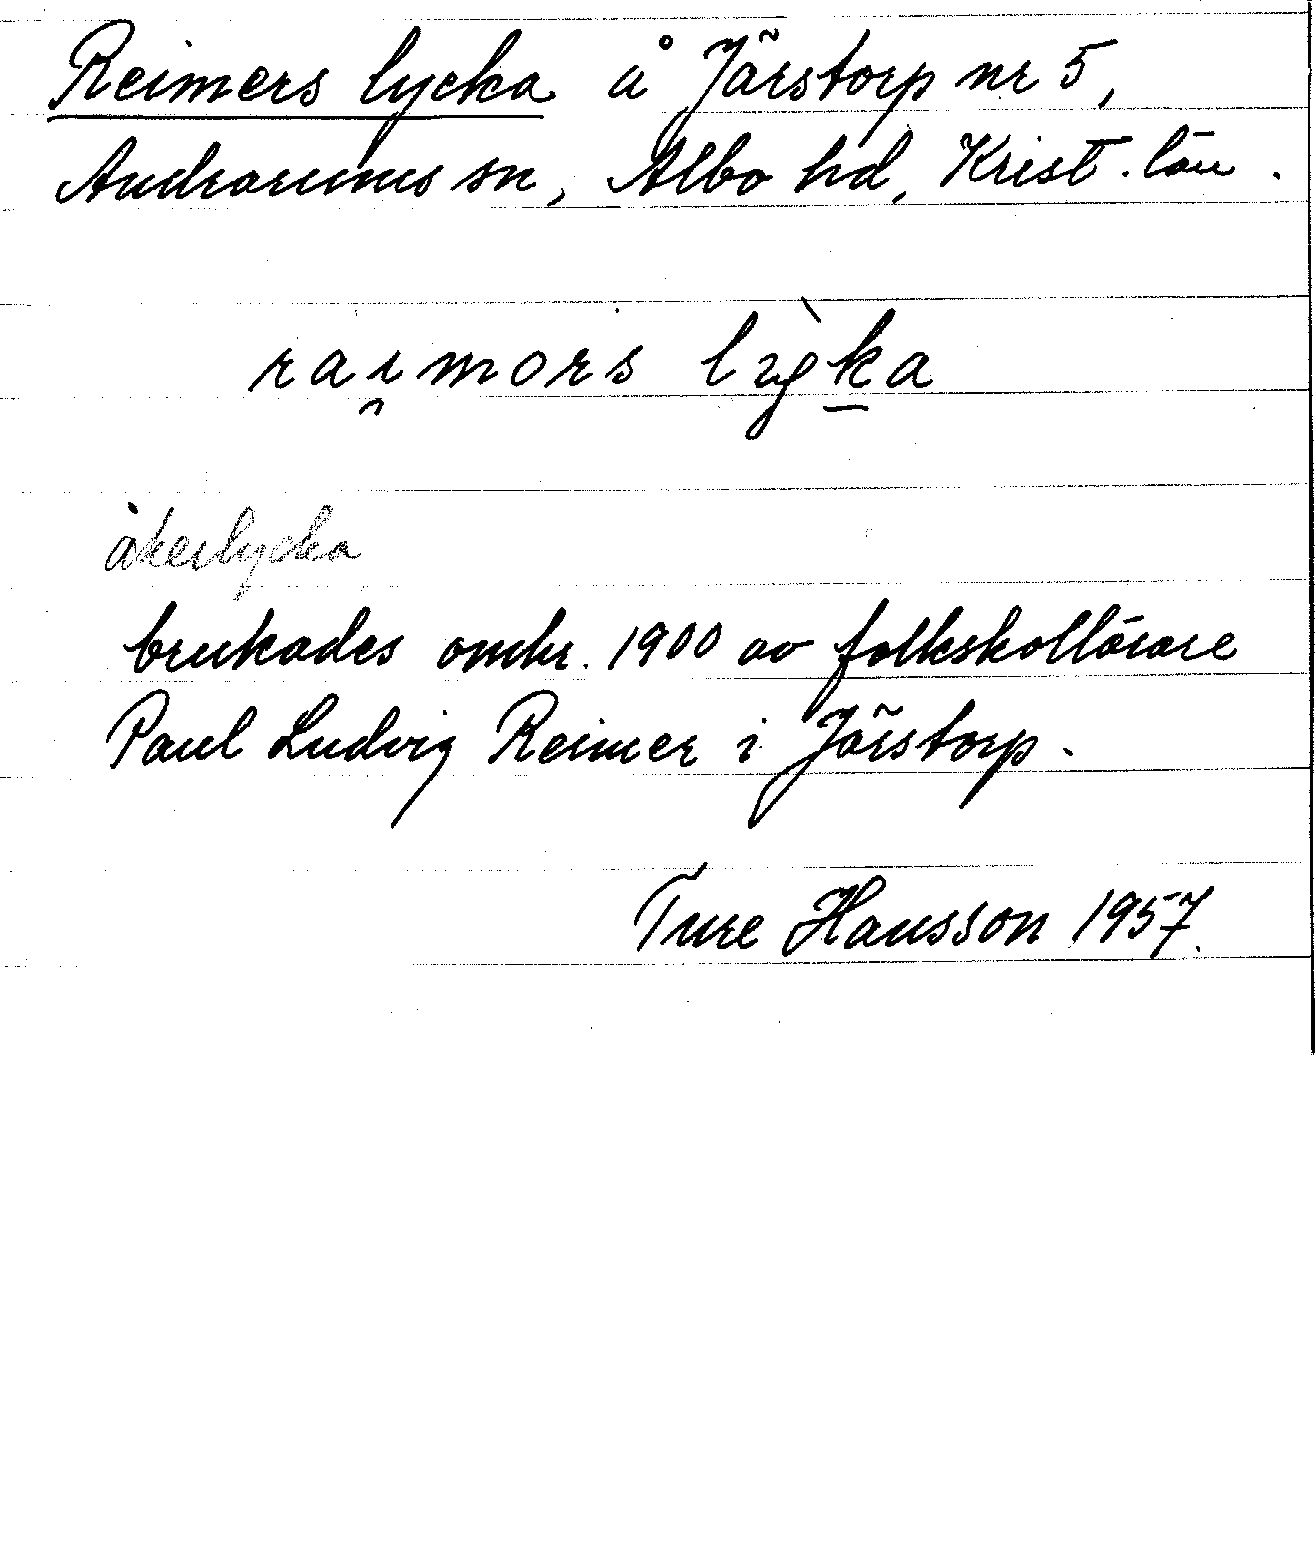 Reimers lycka å Järstorp nr 5,
Andrarums sn, Albo hd, Krist. län.
raɪ̯mors lyk̠a
åkerlycka
brukades omkr. 1900 av folkskollärare
Paul Ludvig Reimer i Järstorp.
Ture Hansson 1957.